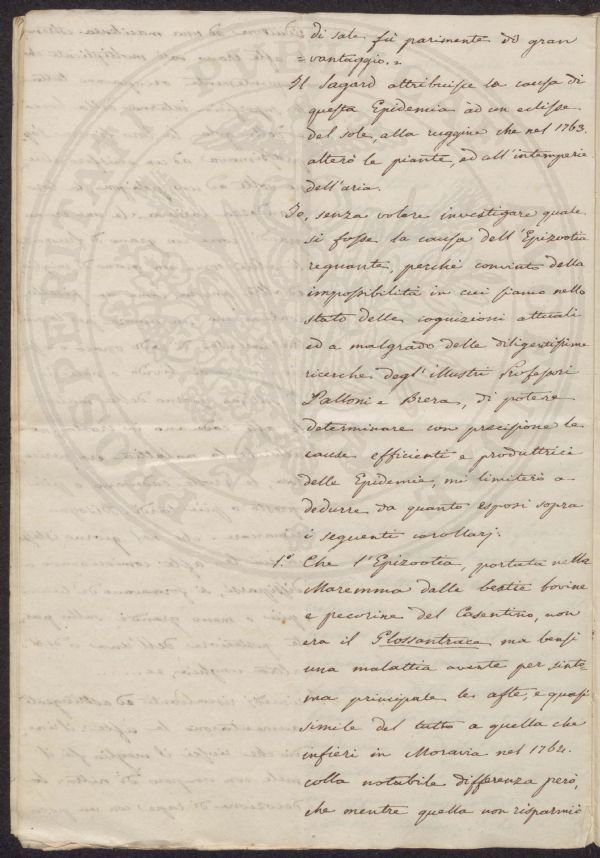 di sale fù parimente di gran
= vantaggio. =
Il Sagard attribuisce la causa di
questa Epidemia ad un eclisse
del sole, alla ruggine che nel 1763.
alterò le piante, ed all'intemperie
dell'aria.
Io, senza volere investigare quale
si fosse la causa dell'Epizootia
regnante, perché convinto della
impossibilità in cui siamo nello
stato delle cognizioni attuali
ed a malgrado delle diligentissime
ricerche degl'illustri Professori
Palloni e Brera, di potere
determinare con precisione le
cause efficienti e produttrici
delle Epidemie, mi limiterò a
dedurre da quanto esposi sopra
i seguenti corollarj.
1.° Che l'Epizootia, portata nella
Maremma dalle bestie bovine
e pecorine del Casentino, non
era il Glossantrace, ma bensì
una malattia avente per sinto=
ma principale le afte, e quasi
simile del tutto a quella che
infierì in Moravia nel 1764.
colla notabile differenza però,
che mentre quella non risparmiò